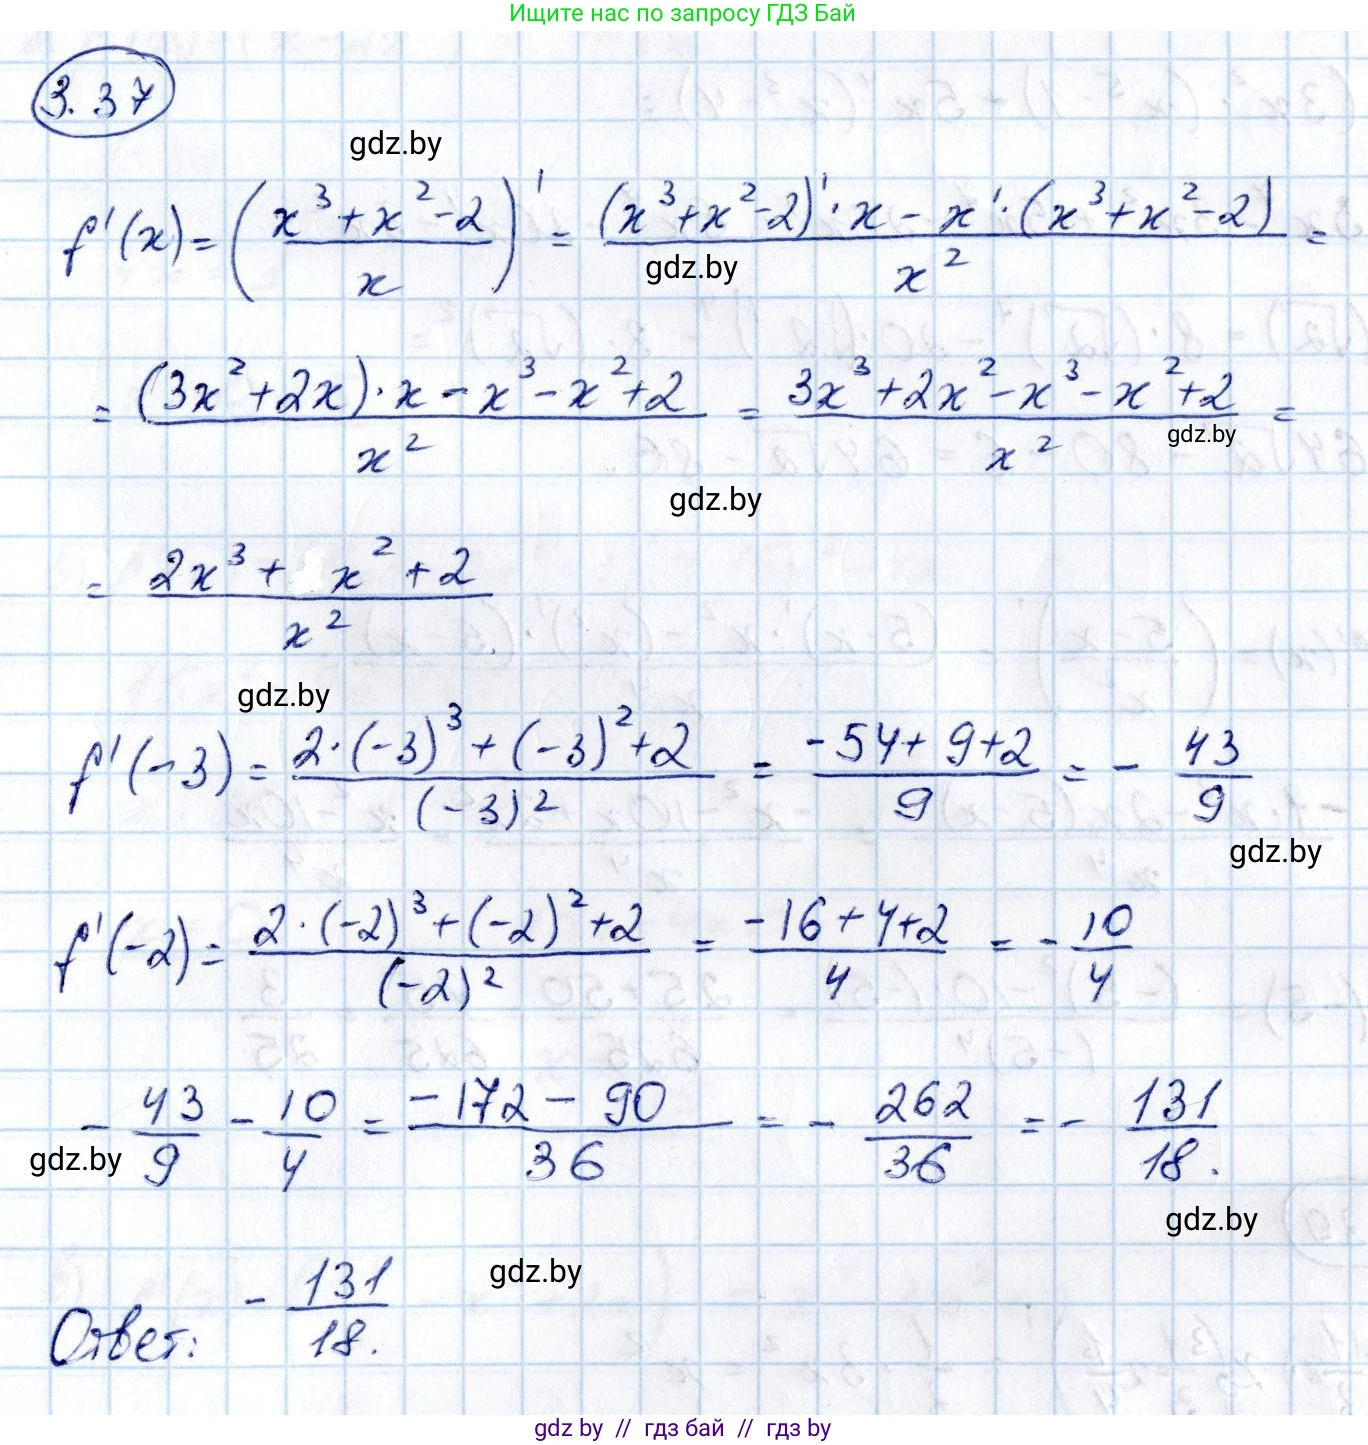 Ищите нас по запросу ГДЗ Бай
3.37
gdz.by
f'(x) = ((x³+x²-2)/x)' = ((x³+x²-2)'·x - x'·(x³+x²-2))/x² =
gdz.by
= ((3x²+2x)·x - x³-x²+2)/x² = (3x³+2x²-x³-x²+2)/x² =
gdz.by
gdz.by
= (2x³+ x²+2)/x²
gdz.by
f'(-3) = (2·(-3)³+(-3)²+2)/(-3)² = (-54+9+2)/9 = - 43/9
gdz.by
f'(-2) = (2·(-2)³+(-2)²+2)/(-2)² = (-16+4+2)/4 = - 10/4
- 43/9 - 10/4 = (-172 - 90)/36 = - 262/36 = - 131/18.
gdz.by
gdz.by
gdz.by
Ответ: - 131/18.
gdz.by // гдз бай // gdz.by